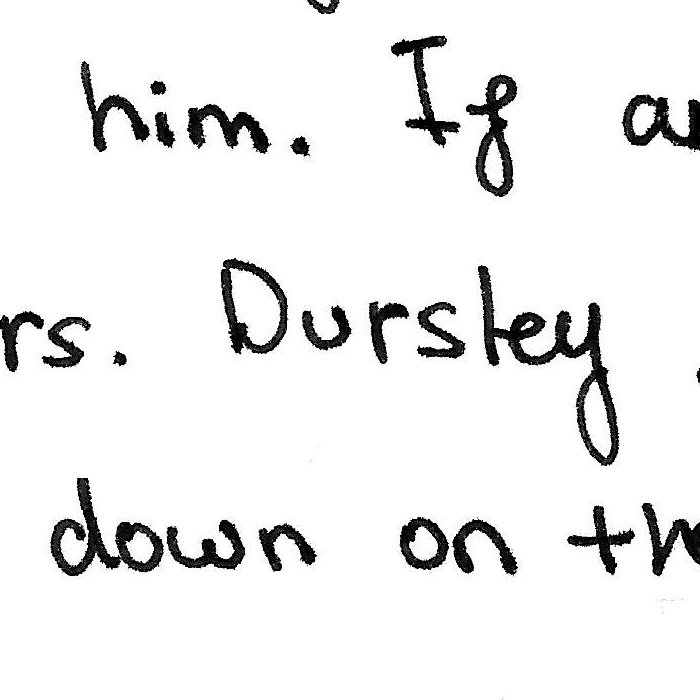 him. If
rs. Dursley
down on